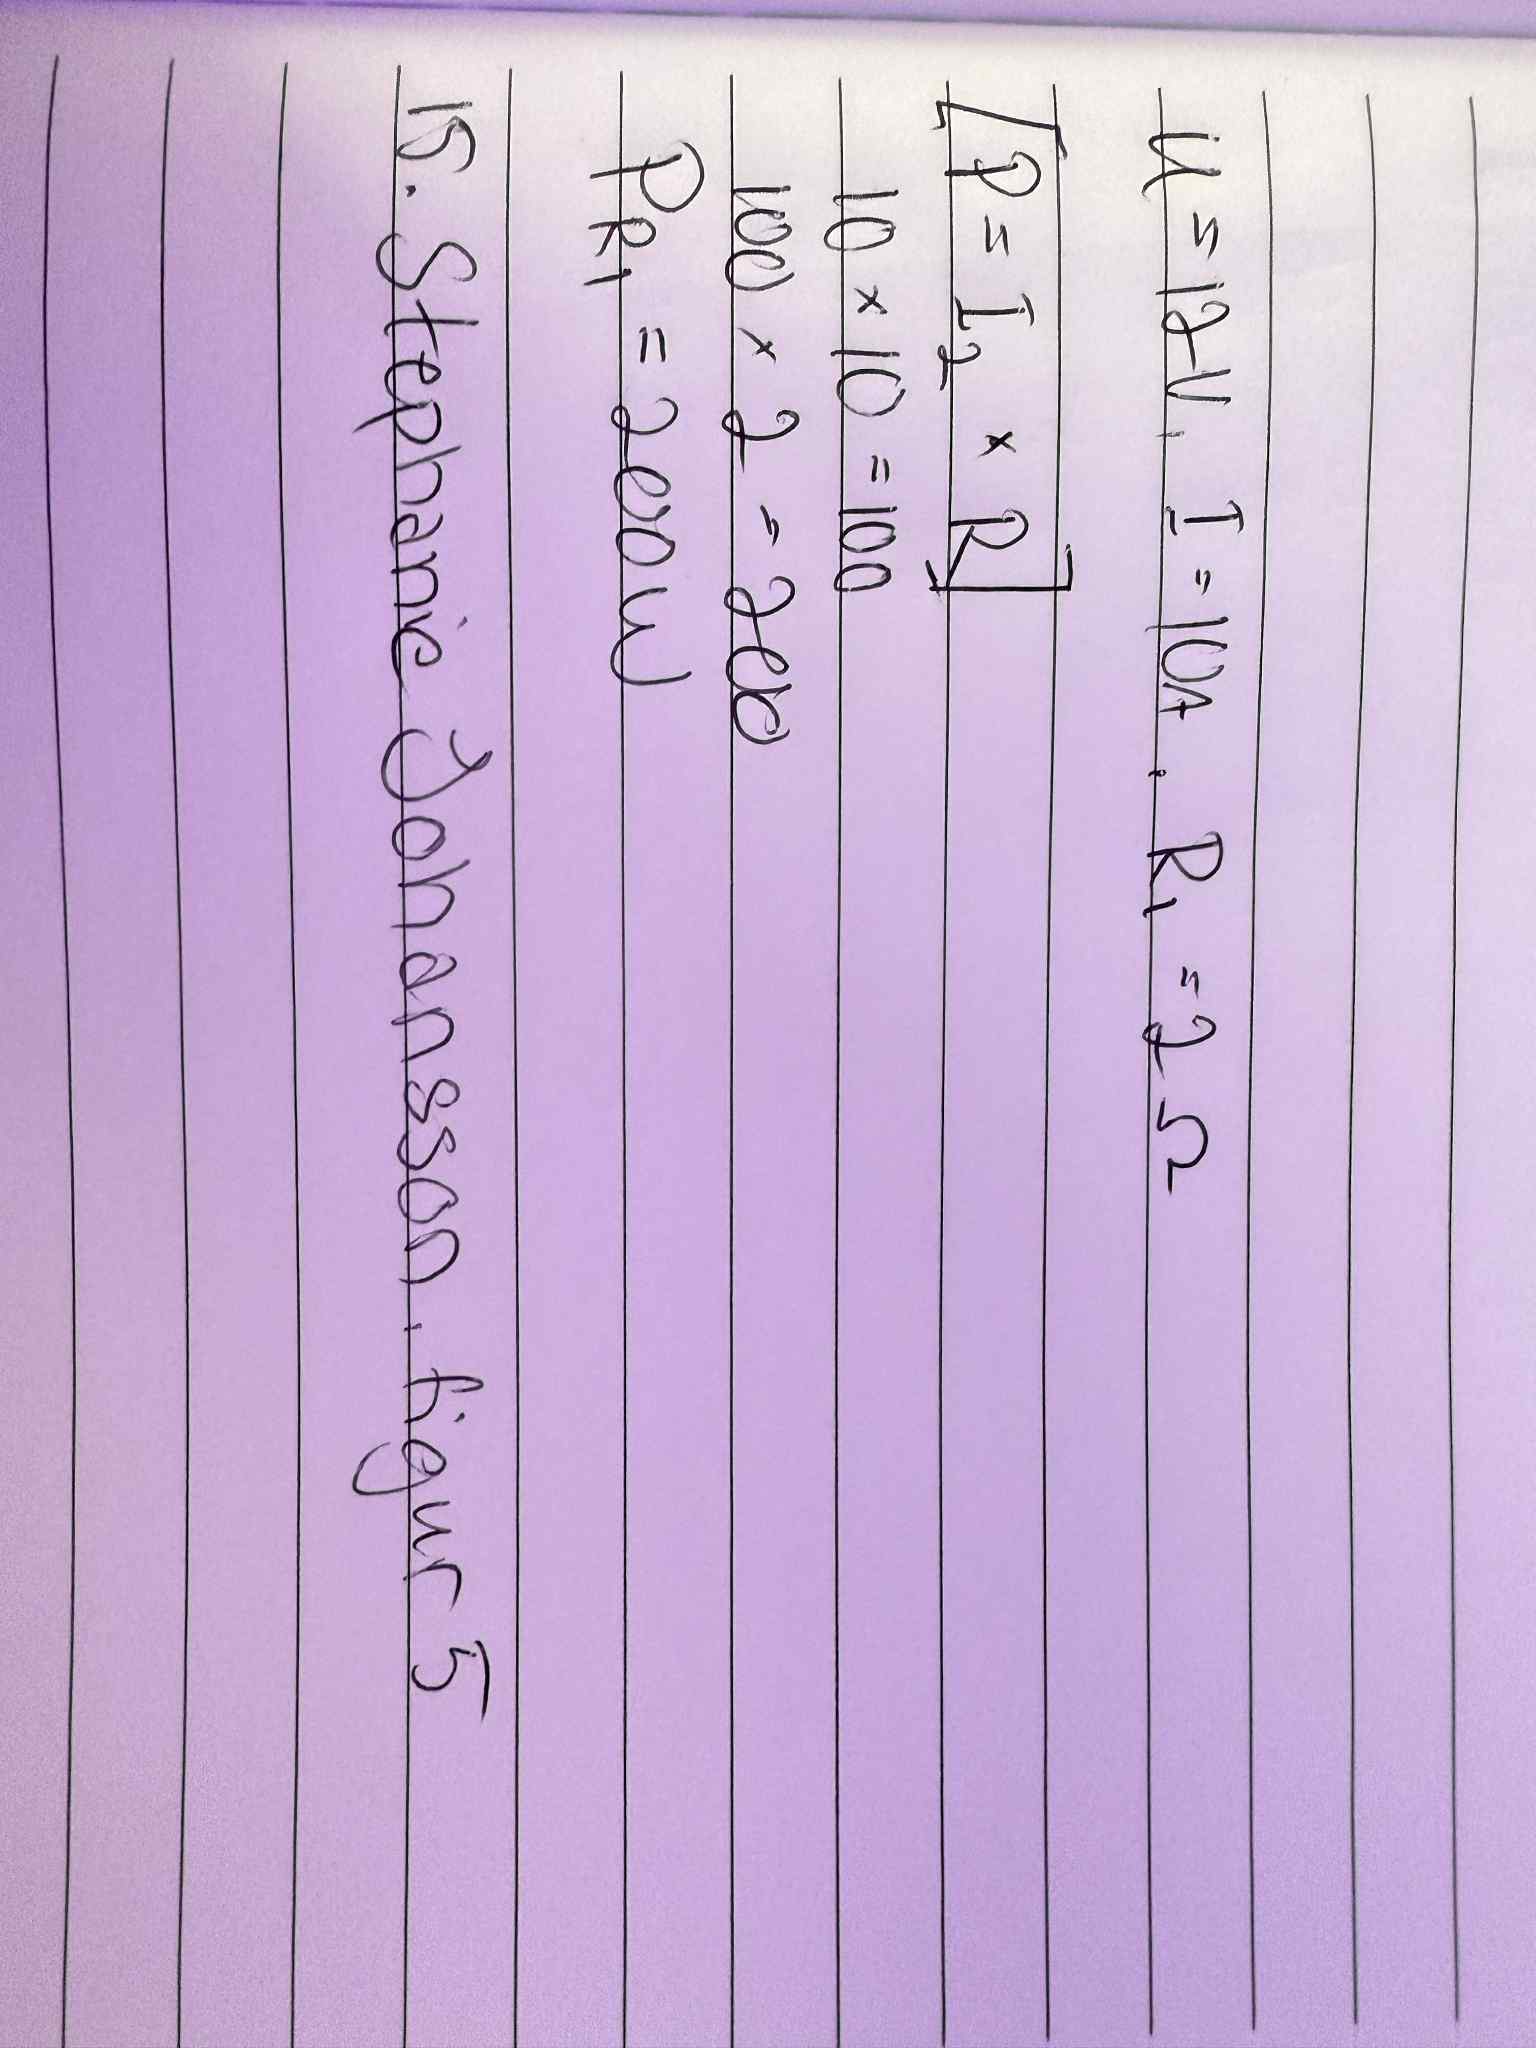 U = 12V, I = 10A. R₁ = 2 Ω
[P = I₂ × R]
10 × 10 = 100
100 × 2 = 200
PR₁ = 200W
15. Stephanie Johansson, figur 5